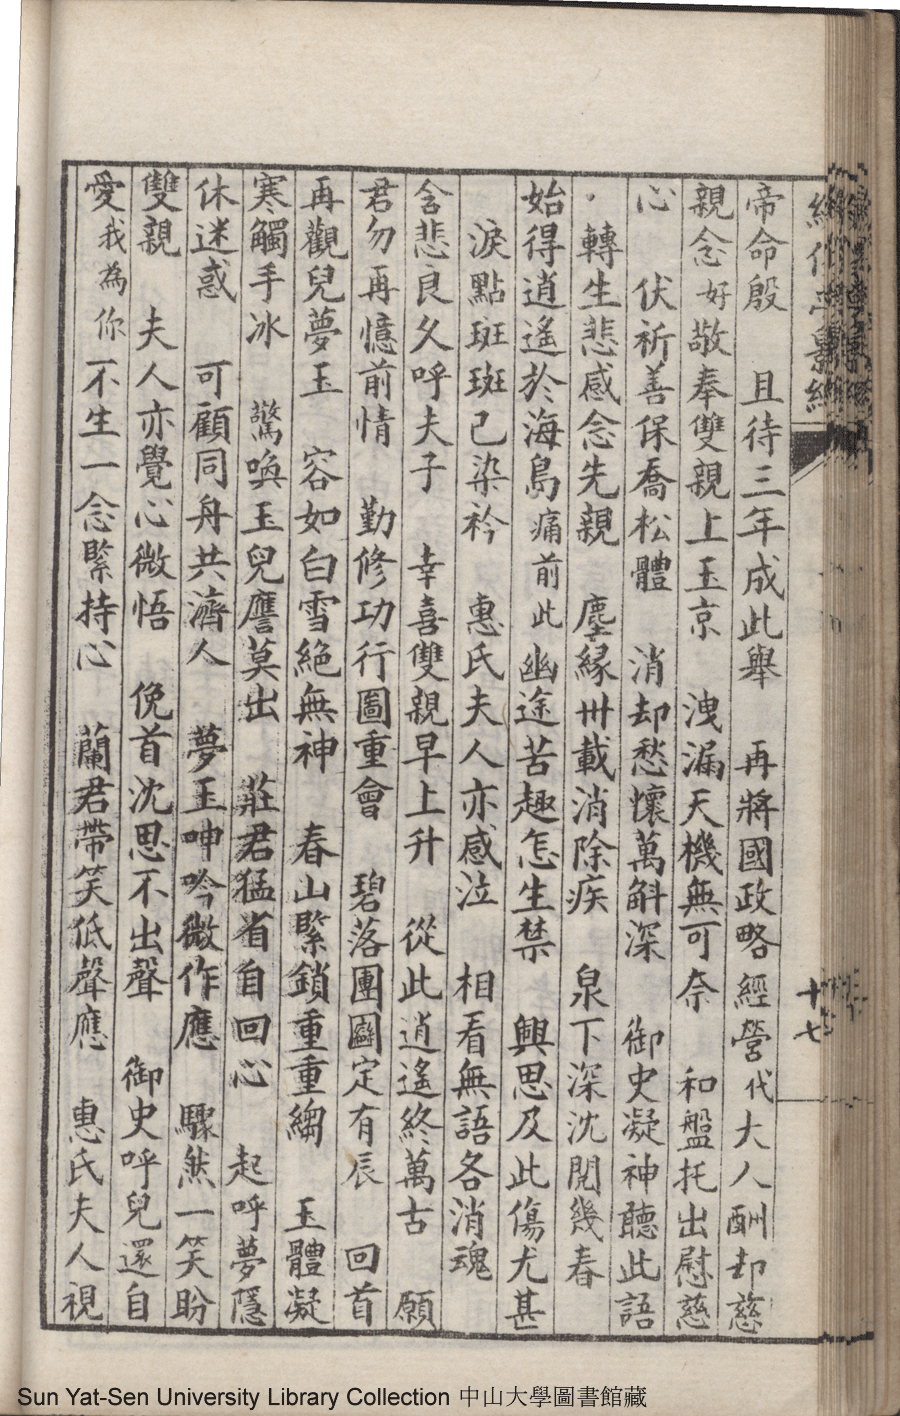 帝命殷 且待三年成此舉 再將國政略經營代大人酬却慈
親念好敬奉雙親上玉京 洩漏天機無可奈 和盤托出慰慈
心 伏祈善保喬松體 消却愁懷萬斛深 御史凝神聽此語
轉生悲感念先親 塵緣卅載消除疾 泉下深沈閱幾春
始得逍遙於海島痛前此幽途苦趣怎生禁 興思及此傷尤甚
淚點斑斑已染衿 惠氏夫人亦感泣 相看無語各消魂
含悲良久呼夫子 幸喜雙親早上升 從此逍遙終萬古 願
君勿再憶前情 勤修功行圖重會 碧落團圞定有辰 回首
再觀兒夢玉 容如白雪絕無神 春山緊鎖重重縐 玉體凝
寒觸手冰 驚喚玉兒譍莫出 莊君猛省自回心 起呼夢隱
休迷惑 可顧同舟共濟人 夢玉呻吟微作應 驟然一笑盼
雙親 夫人亦覺心微悟 俛首沈思不出聲 御史呼兒還自
愛我為你不生一念緊持心 蘭君帶笑低聲應 惠氏夫人視
十七
Sun Yat-Sen University Library Collection 中山大學圖書館藏